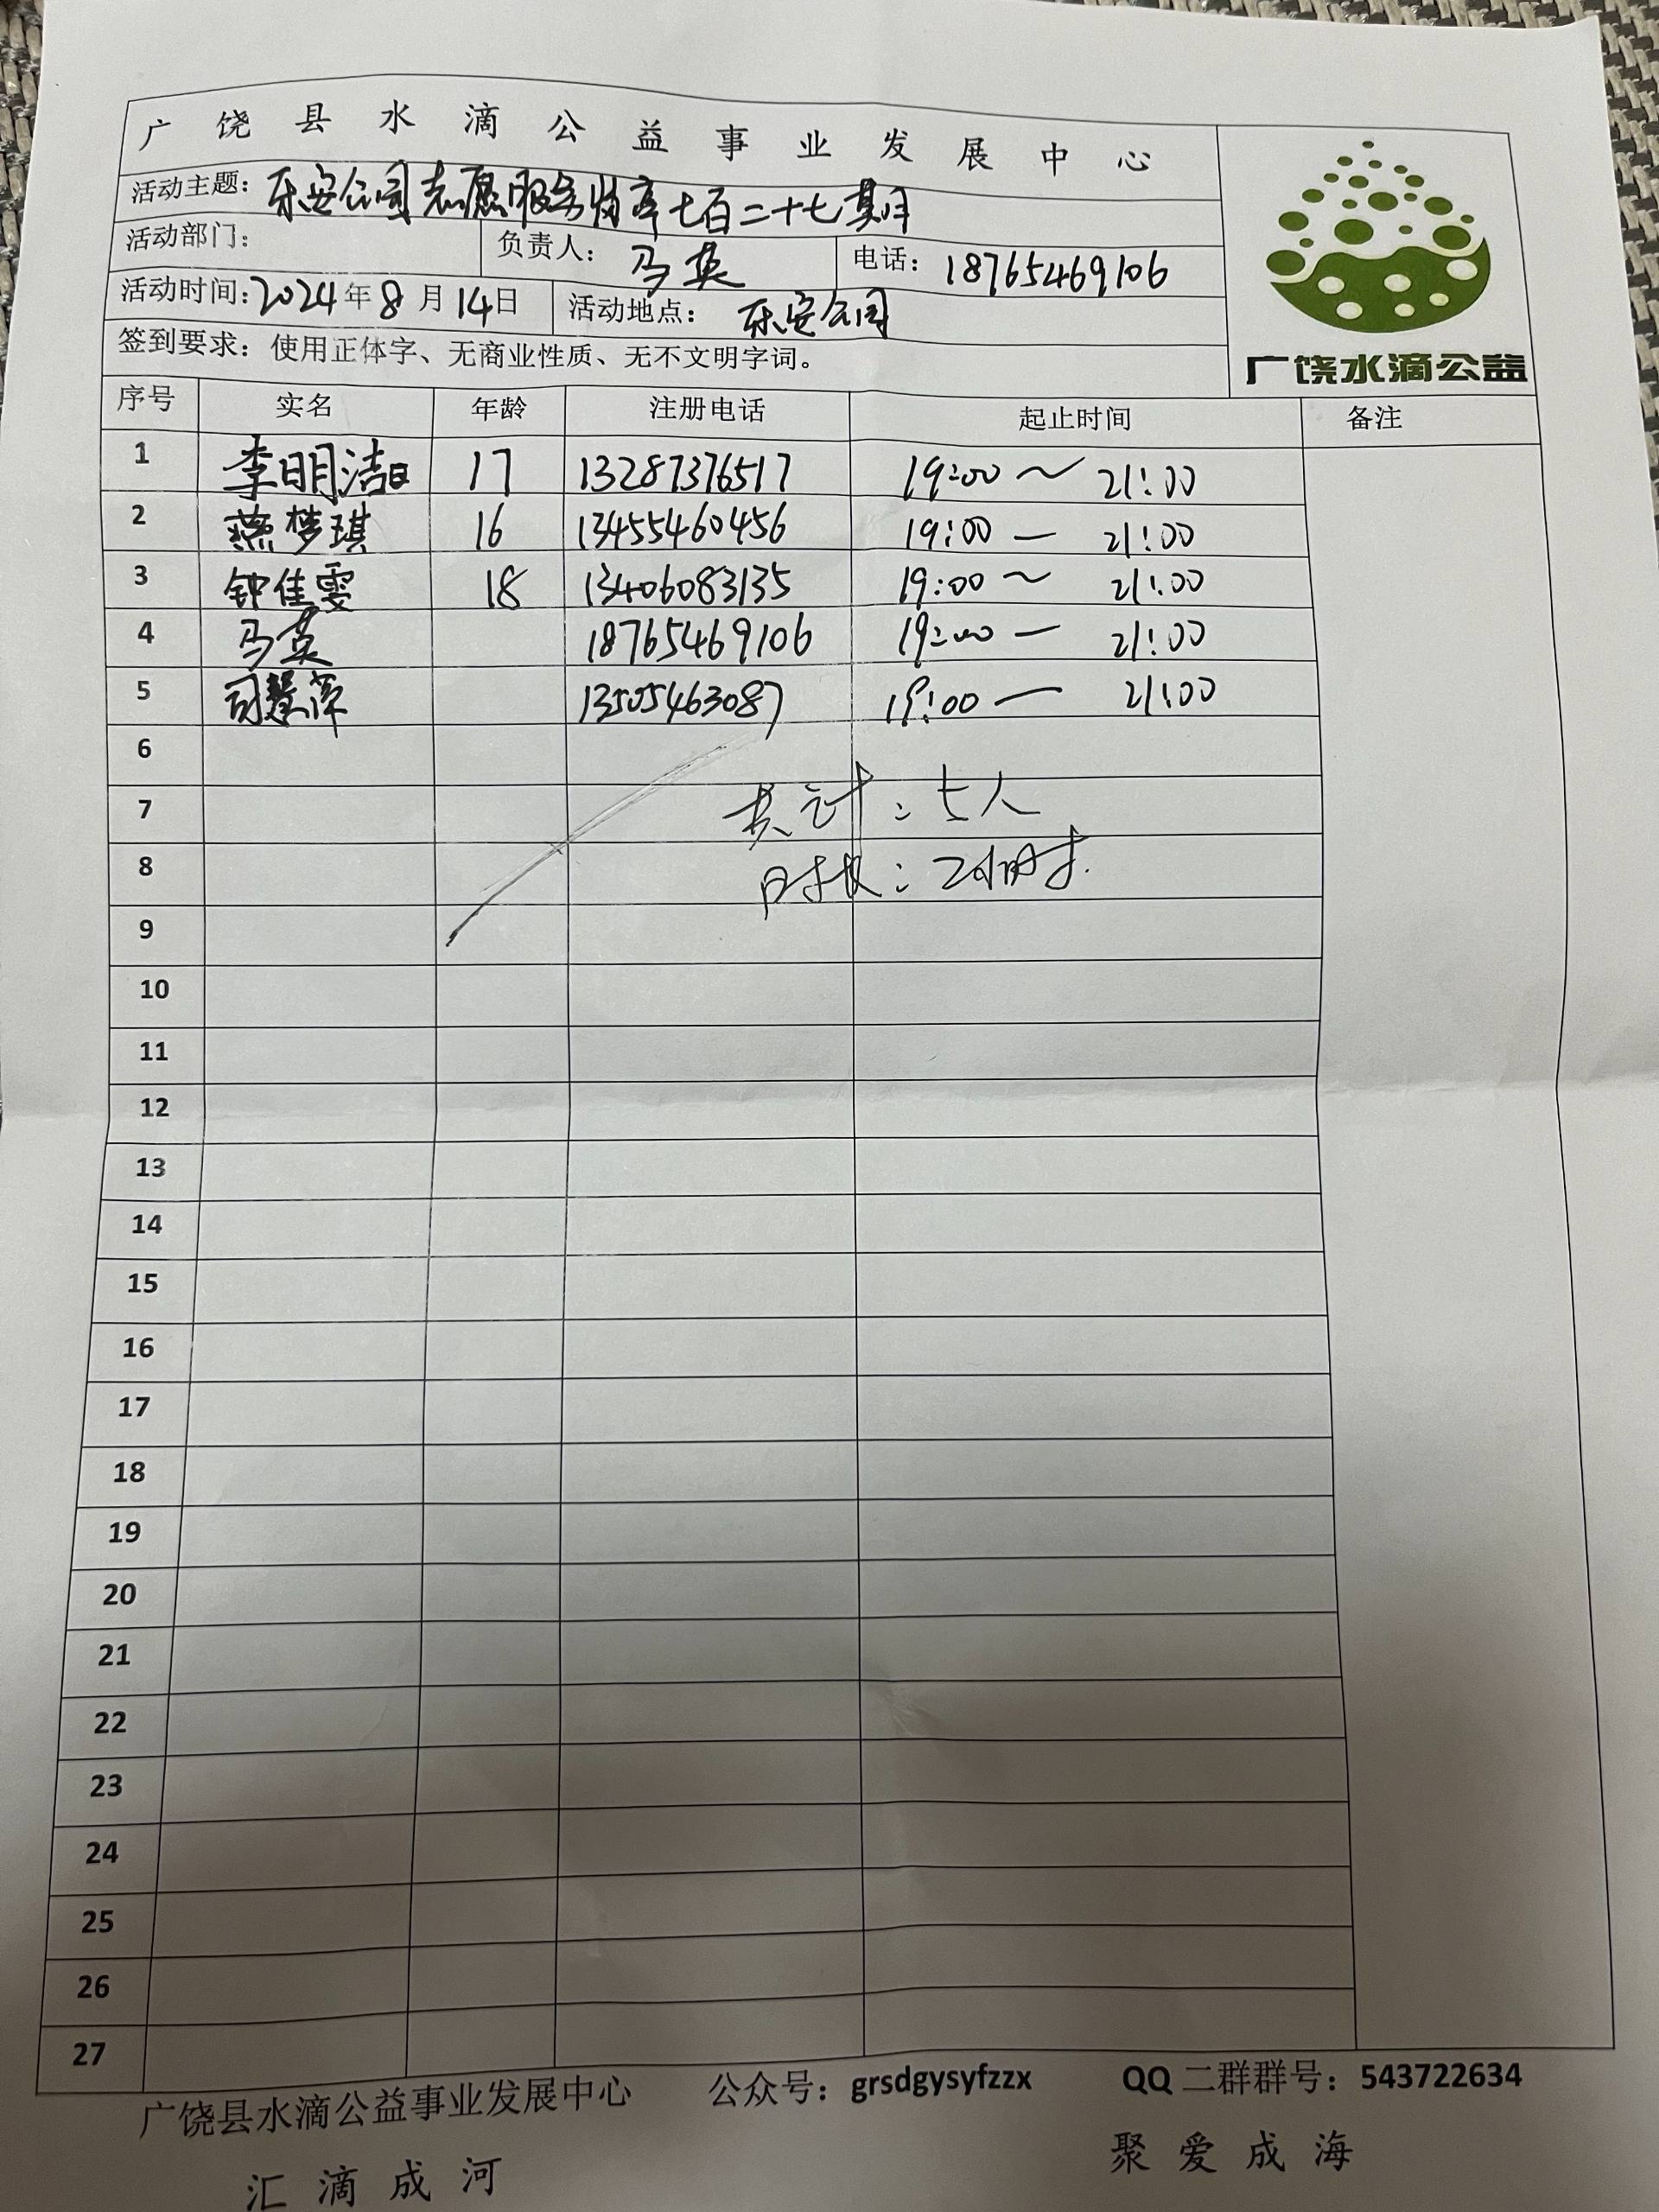 广饶县水滴公益事业发展中心
活动主题：乐安公园志愿服务 七百二十七期
活动部门： 负责人：马英 电话：18765469106
活动时间：2024年8月14日 活动地点：乐安公园
签到要求：使用正体字、无商业性质、无不文明字词。
广饶水滴公益
序号 实名 年龄 注册电话 起止时间 备注
1 李明洁 17 13287376517 19:00～21:00
2 燕梦琪 16 13455460456 19:00—21:00
3 钟佳雯 18 13406083135 19:00～21:00
4 马英 18765469106 19:00—21:00
5 司慧萍 13505463087 19:00—21:00
6
7 共计：五人
8 时长：2小时.
9
10
11
12
13
14
15
16
17
18
19
20
21
22
23
24
25
26
27
广饶县水滴公益事业发展中心 公众号：grsdgysyfzzx QQ二群群号：543722634
汇滴成河 聚爱成海